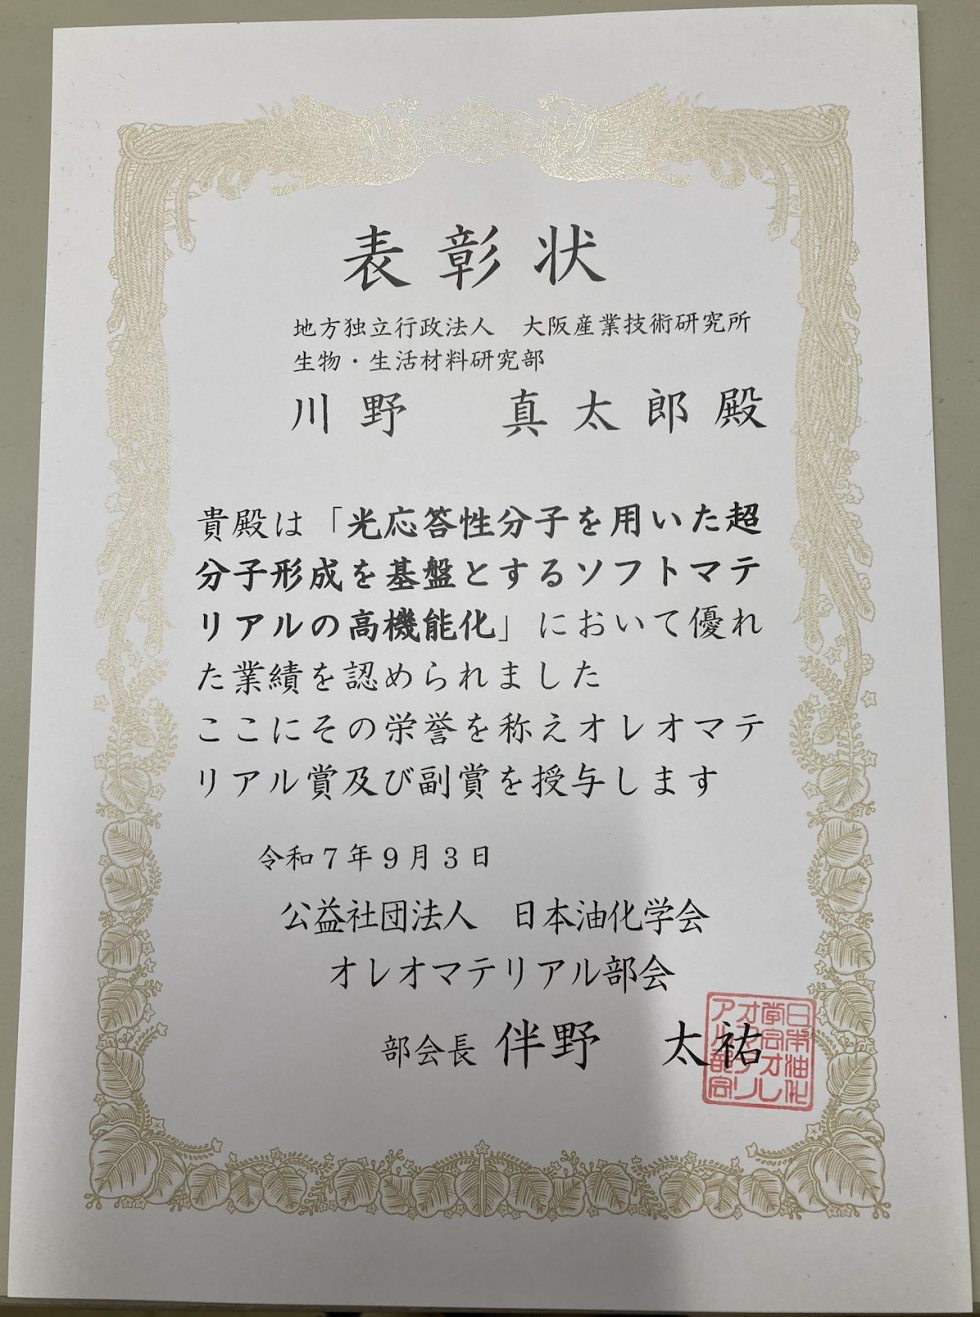 表彰状
地方独立行政法人　大阪産業技術研究所
生物・生活材料研究部
川野　真太郎殿
貴殿は「光応答性分子を用いた超
分子形成を基盤とするソフトマテ
リアルの高機能化」において優れ
た業績を認められました
ここにその栄誉を称えオレオマテ
リアル賞及び副賞を授与します
令和７年９月３日
公益社団法人　日本油化学会
オレオマテリアル部会
部会長 伴野　太祐
日本油化
学会オレ
オマテリ
アル部会